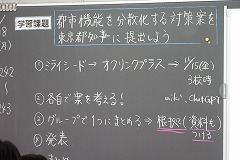 学習課題
都市機能を分散化する対策案を
東京都知事に提出しよう
①ミライシード→オクリンクプラス→ 11/15(金)
3校時
②各自で案を考える! wiki、ChatGPT
③グループで1つにまとめる→根拠(資料も
つける
④発表